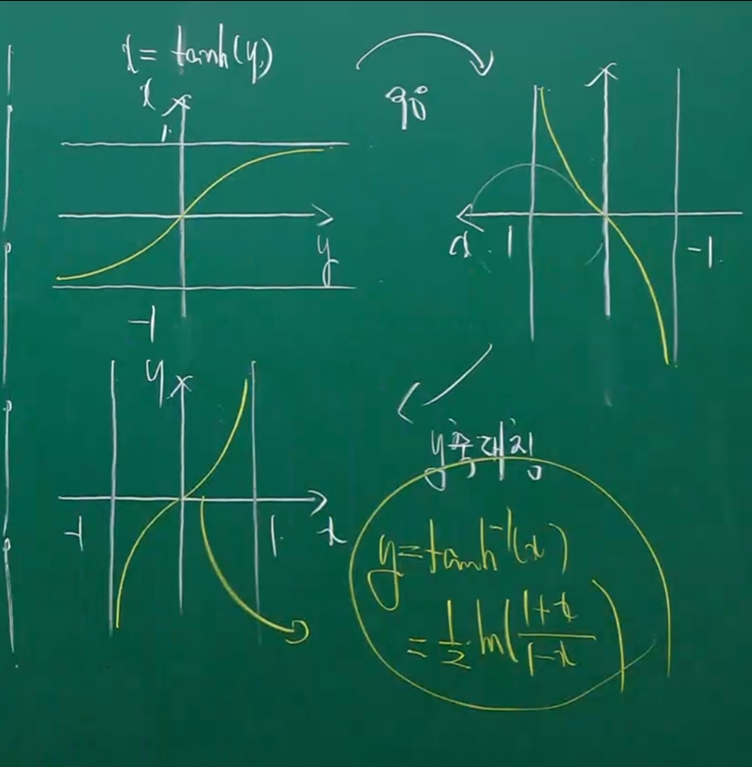 x = tanh(y)
x
1
y
-1
90°
x 1 -1
y
-1 1 x
y축대칭
y = tanh⁻¹(x)
= 1/2 ln(1+x/1-x)